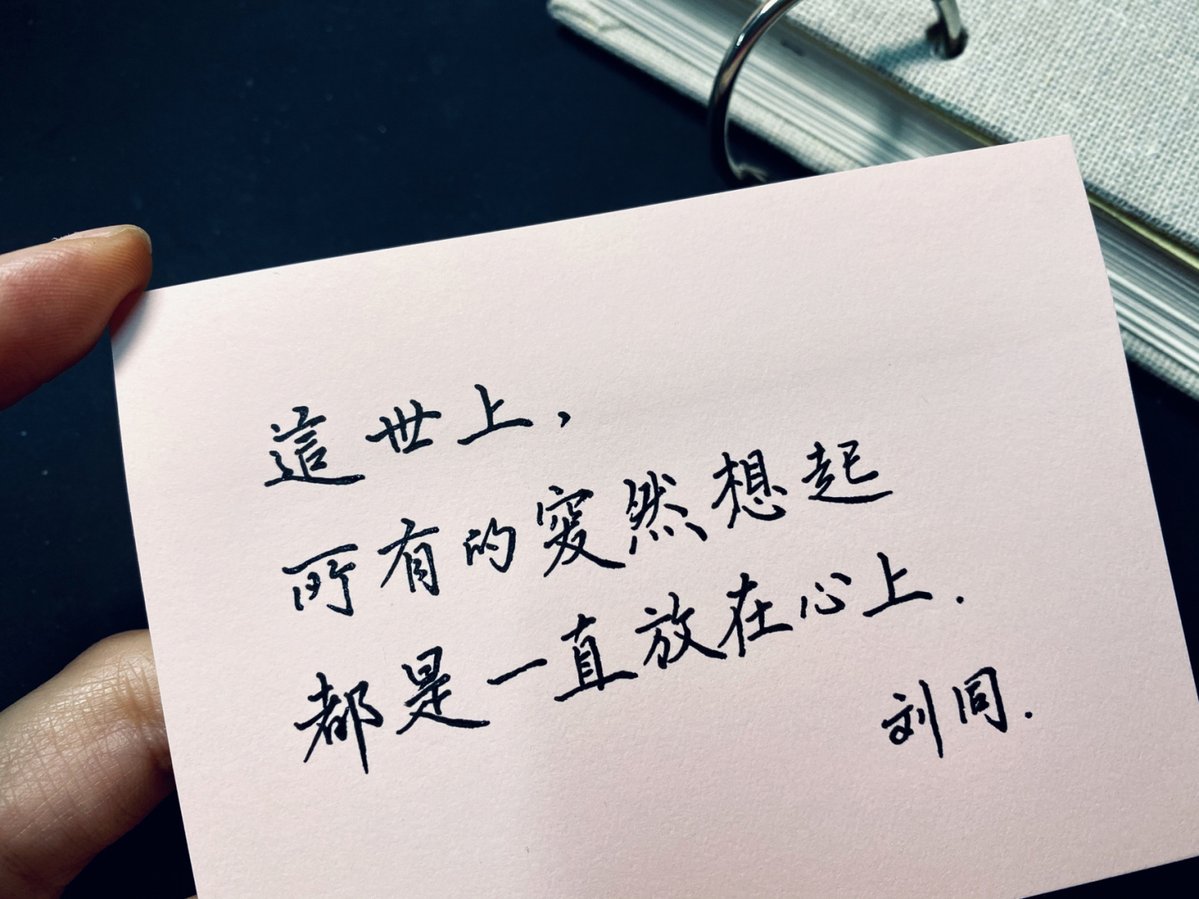 這世上，
所有的突然想起
都是一直放在心上.
刘同.